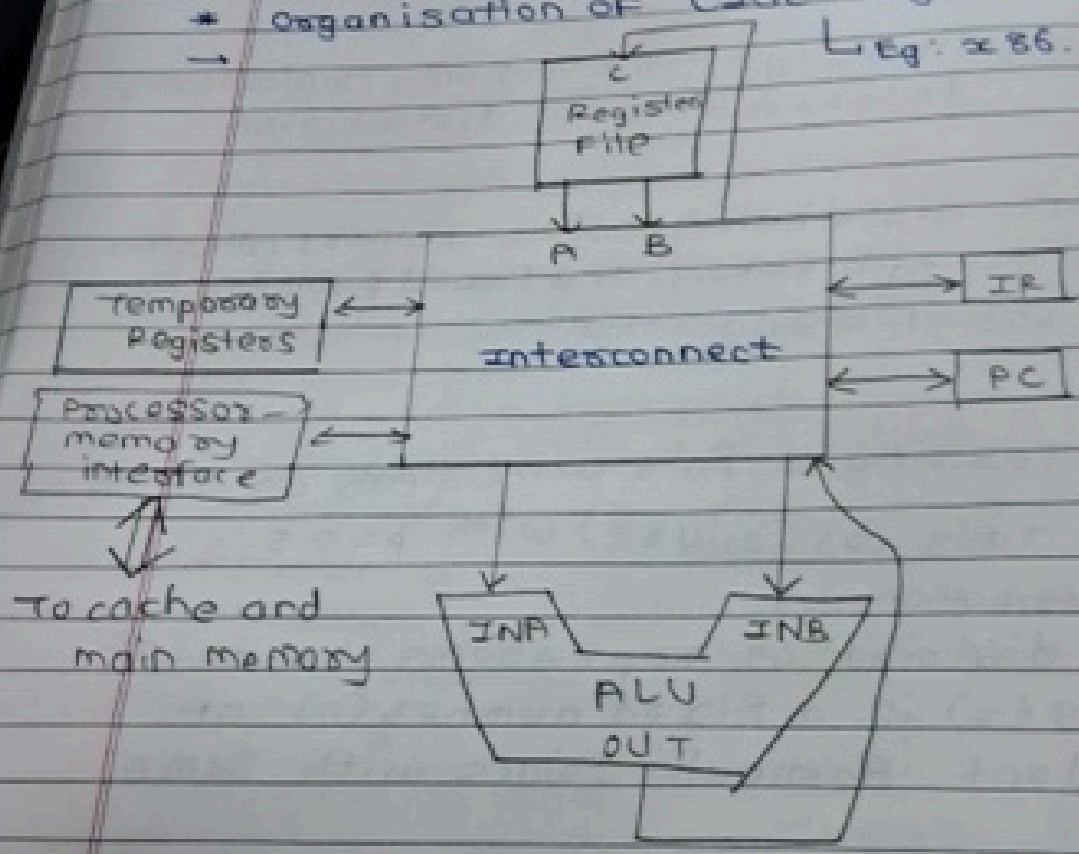 * Organisation of
→ Eg: x86.
C
Register
File
A B
Temporary
Registers
IR
Interconnect
PC
Processor-
memory
interface
To cache and
main memory
INA INB
ALU
OUT